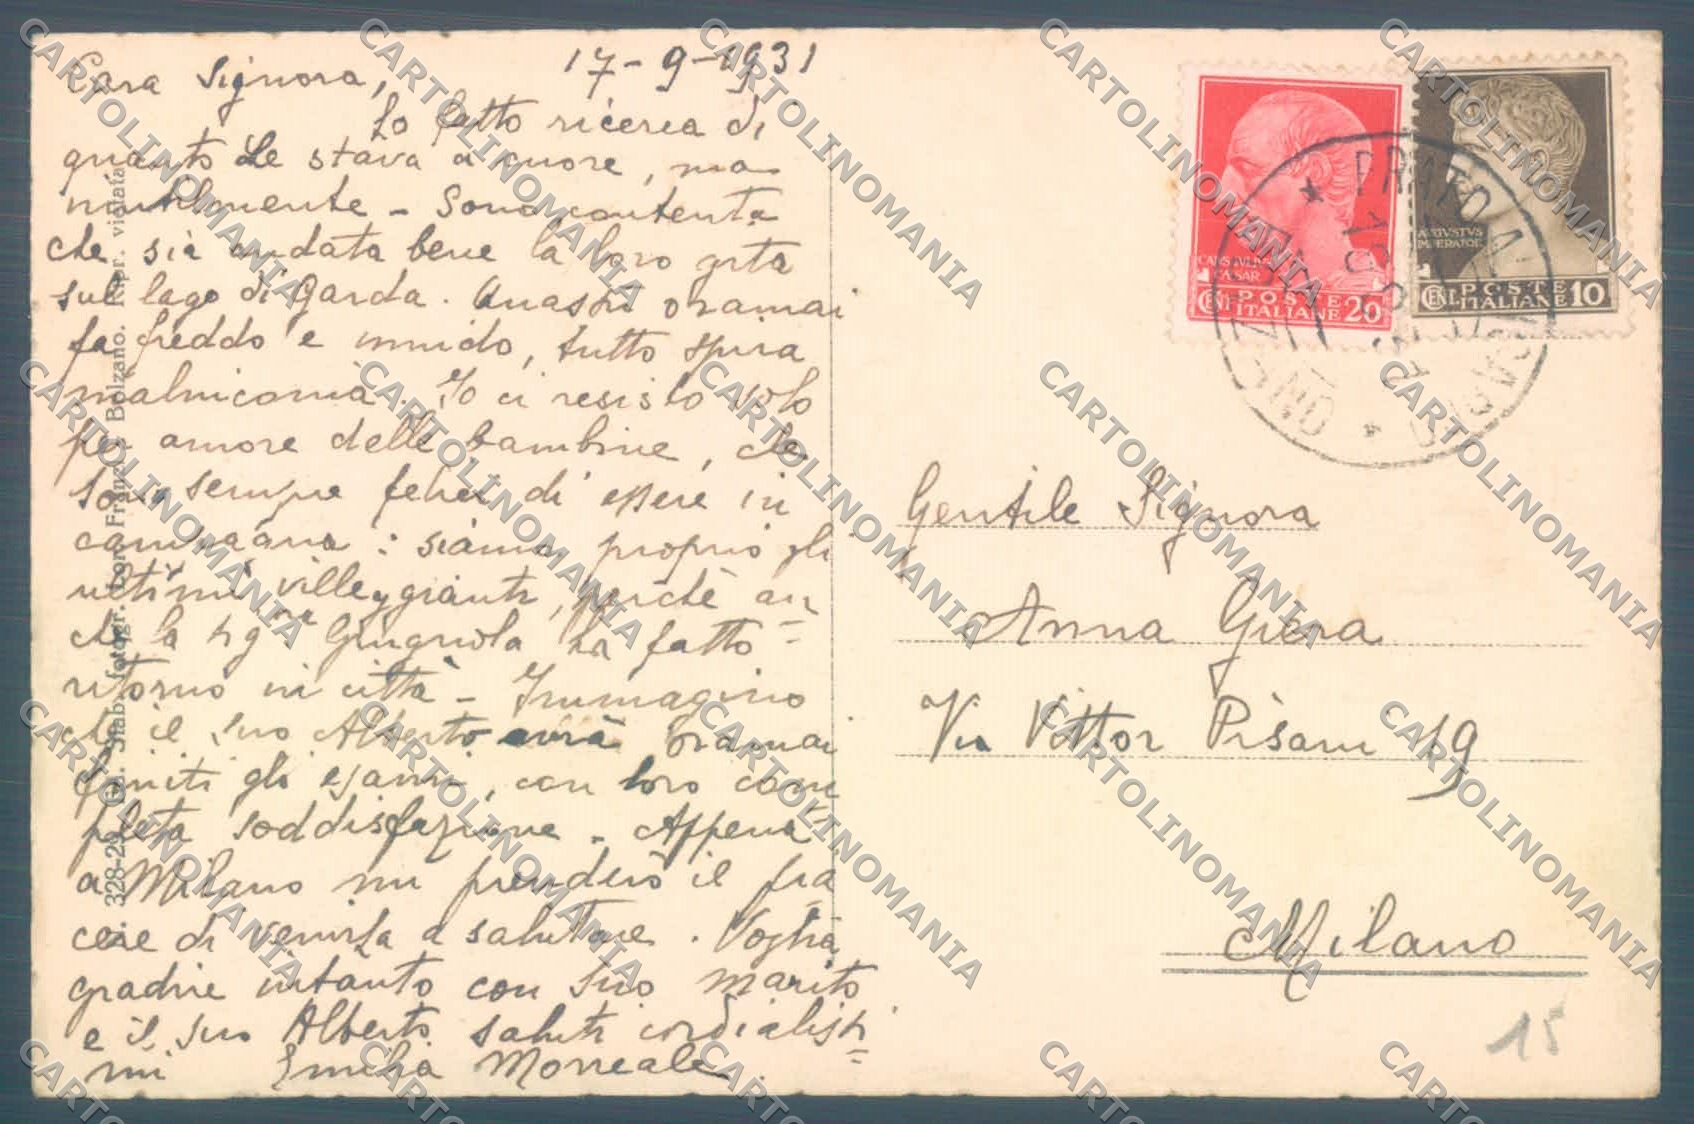 Cara Signora, 17-9-1931
Ho fatto ricerca di
quanto Le stava a cuore, ma
inutilmente - Sono contenta
che sia andata bene la loro gita
sul lago di Garda. Quassù oramai
fa freddo e umido, tutto spira
malinconia. Io ci resisto solo
per amore delle bambine, che
sono sempre felici di essere in
campagna: siamo proprio gli
ultimi villeggianti, perchè an=
che la Sig.ra Giugnola ha fatto
ritorno in città - Immagino
che il suo Alberto avrà oramai
finiti gli esami, con loro com=
pleta soddisfazione - Appena
a Milano mi prenderò il pia=
cere di venirla a salutare. Voglia
gradire intanto con suo marito
e il suo Alberto saluti cordialissi=
mi Emilia Monreale.
Gentile Signora
Anna Giera
Via Vittor Pisani 19
Milano
15
CAES IVLIVS
CAESAR
CENT POSTE ITALIANE 20
AVGVSTVS
IMPERATOR
CENT POSTE ITALIANE 10
PRATO ALL'ISARCO
BOLZANO
328-29 Ed. Stab. fotogr. Lor. Franzl, Bolzano. Ripr. vietata
CARTOLINOMANIA